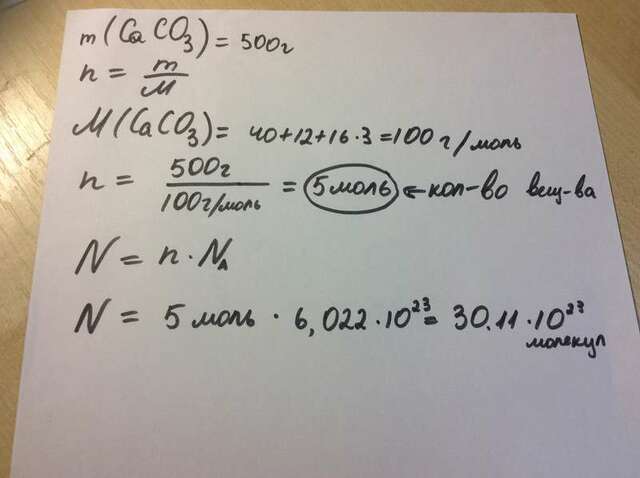 m(CaCO₃) = 500г
n = m/M
M(CaCO₃) = 40+12+16·3 = 100г/моль
n = 500г/100г/моль = 5моль ← кол-во вещ-ва
N = n·Nₐ
N = 5 моль · 6,022·10²³ = 30.11·10²³
молекул